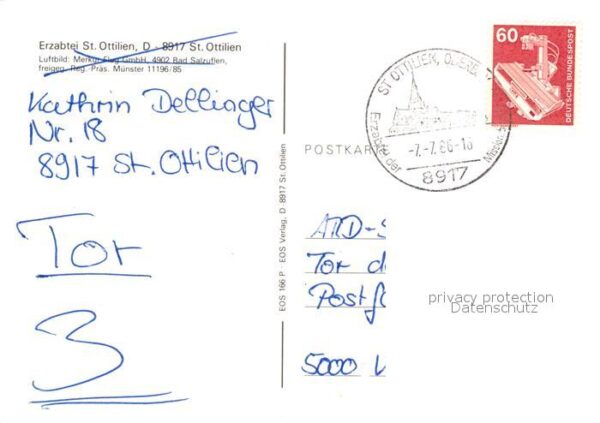 Erzabtei St. Ottilien, D - 8917 St. Ottilien
Luftbild: Merkur Flug GmbH, 4902 Bad Salzuflen,
freigeg. Reg. Präs. Münster 11196/85
Kathrin Dellinger
Nr. 18
8917 St. Ottilien
Tor
3
EOS 166 P · EOS Verlag, D · 8917 St. Ottilien
POSTKAR
60
DEUTSCHE BUNDESPOST
ST OTTILIEN,
Erzabtei der
-7.-7.86-18
8917
ARD-S
Tor d
Postf
5000
privacy protection
Datenschutz